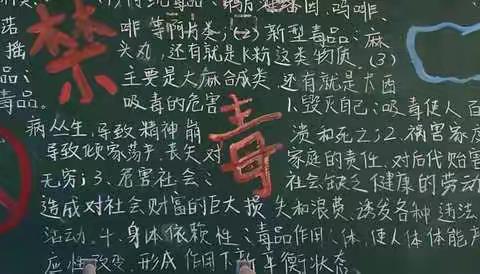 禁毒
毒品: 海洛因、吗啡、
诺 啡 等鸦片类, (2) 新型毒品: 麻
摇 头丸, 还有就是K粉这类物质。(3)
品: 主要是大麻合成类, 还有就是大西
毒品。 吸毒的危害 1.毁灭自己: 吸毒使人百
病丛生, 导致精神崩 溃和死亡; 2.祸害家庭
导致倾家荡产, 丧失对 家庭的责任, 对后代贻害
无穷; 3.危害社会: 社会缺乏健康的劳动
造成对社会财富的巨大损 失和浪费, 诱发各种违法
活动。4.身体依赖性: 毒品作用 体, 使人体体能产
应性改变, 形成 作用下的 平衡状态